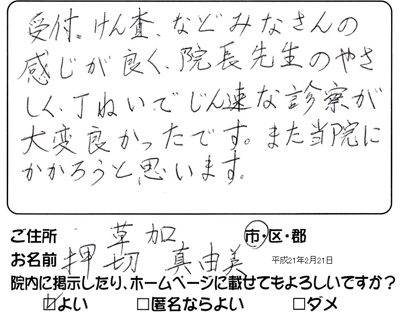 受付、けん査、などみなさんの
感じが良く、院長先生のやさ
しく、丁ねいでじん速な診察が
大変良かったです。また当院に
かかろうと思います。
ご住所 草加 市・区・郡
お名前 押切 真由美 平成21年2月21日
院内に掲示したり、ホームページに載せてもよろしいですか?
☑よい □匿名ならよい □ダメ